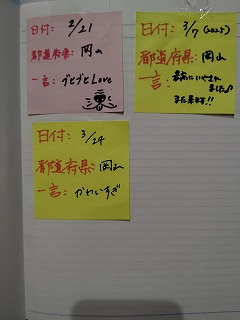 日付: 2/21
都道府県: 岡山
一言: グビグビLove
日付: 3/7 (2025)
都道府県: 岡山
一言:
ました♪
また来ます!!
日付: 3/24
都道府県: 岡山
一言: かわいすぎ